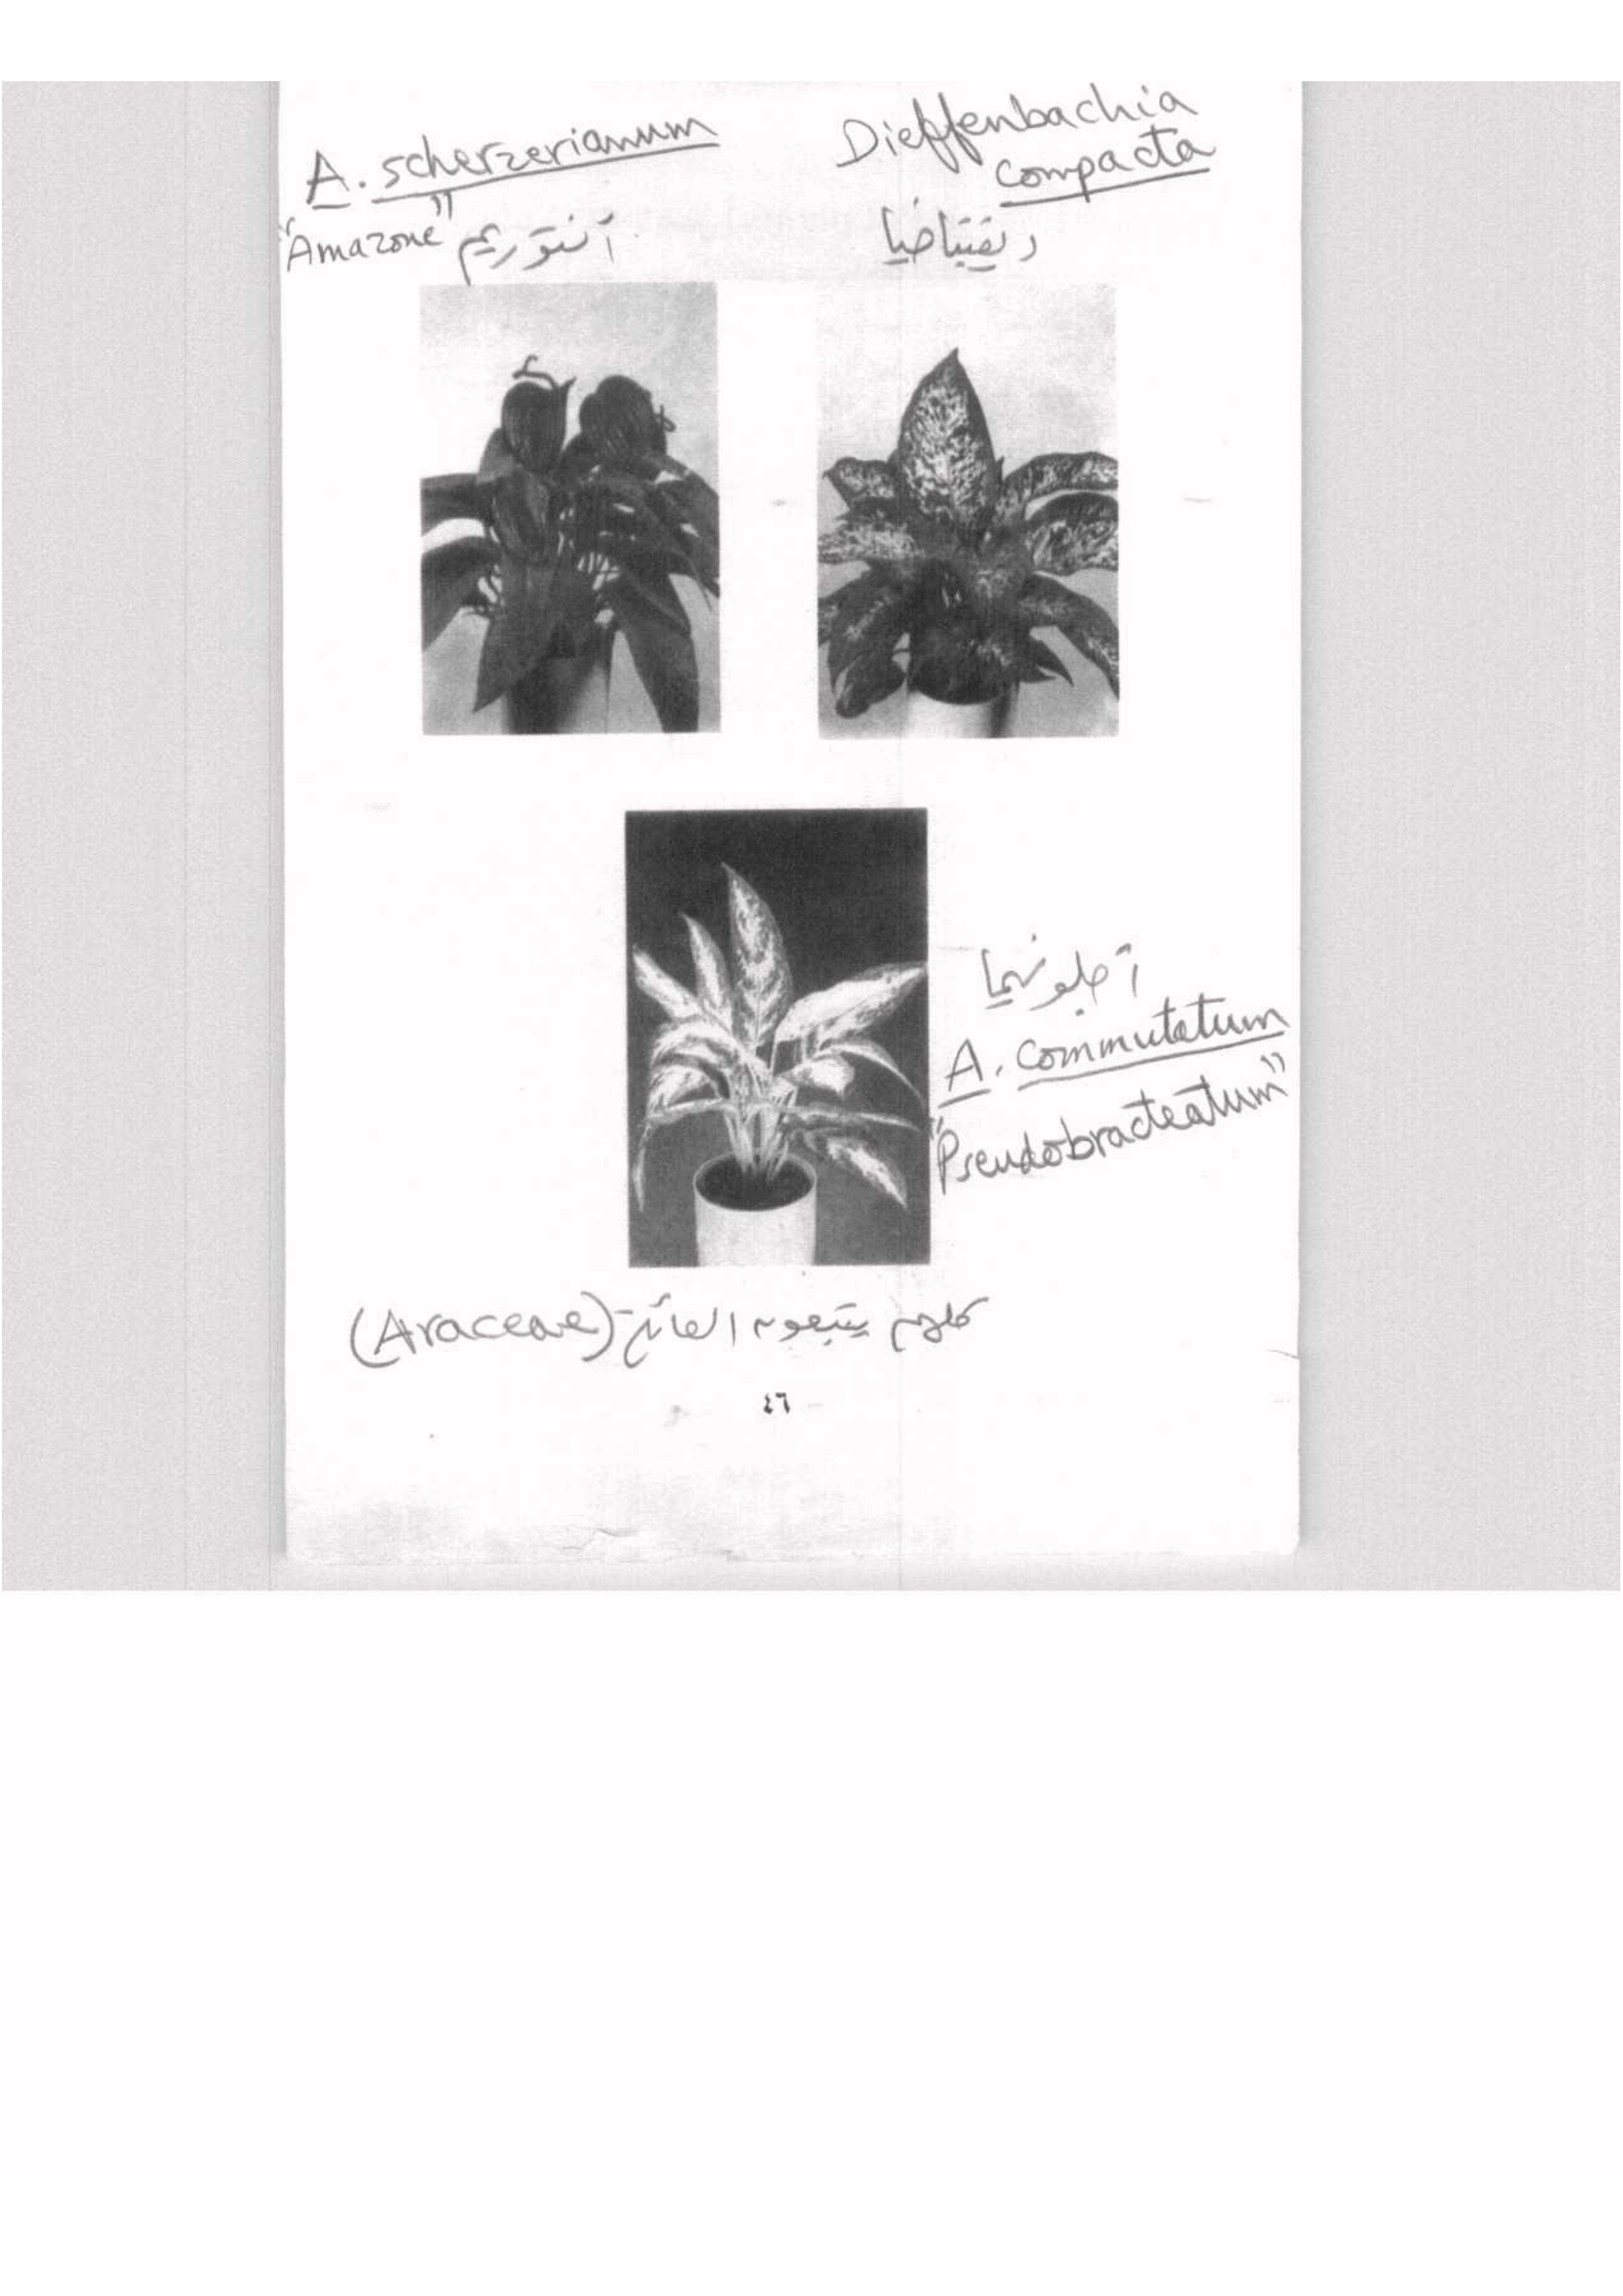 A. scherzerianum
"Amazone" آنتوريم
Dieffenbachia
compacta
دفنباخيا
آجلونيما
A. commutatum
"Pseudobracteatum"
كلهم يتبعون العائلة (Araceae)
٤٦